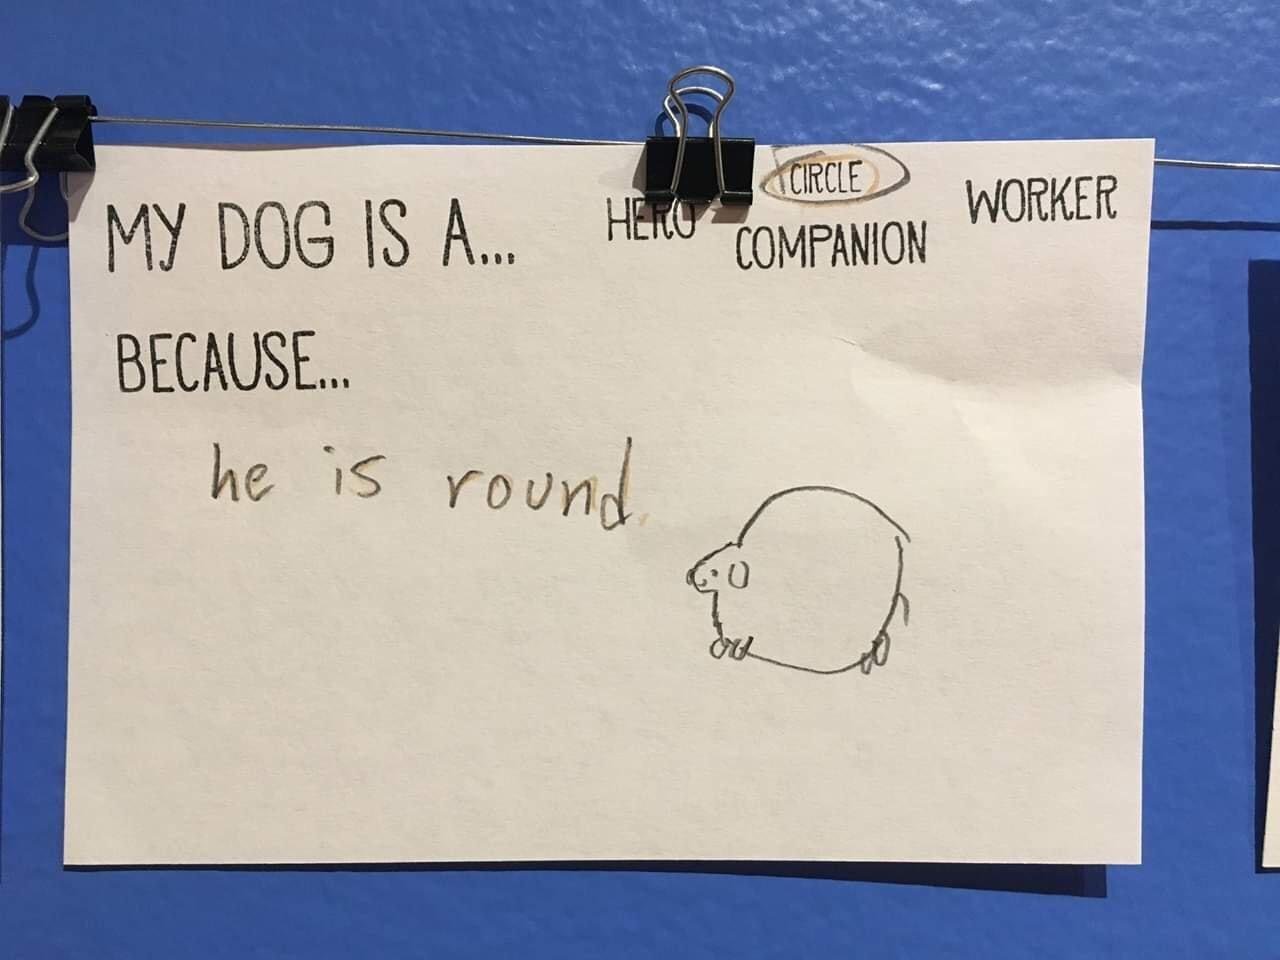 MY DOG IS A... HERO CIRCLE COMPANION WORKER
BECAUSE...
he is round.